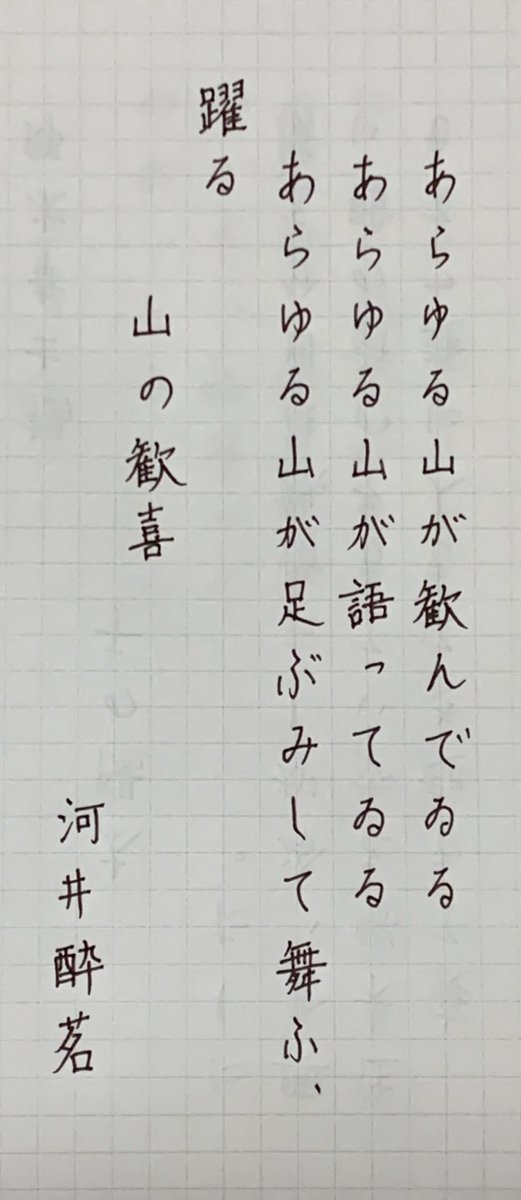 あらゆる山が歓んでゐる
あらゆる山が語ってゐる
あらゆる山が足ぶみして舞ふ、
躍る
山の歓喜
河井酔茗